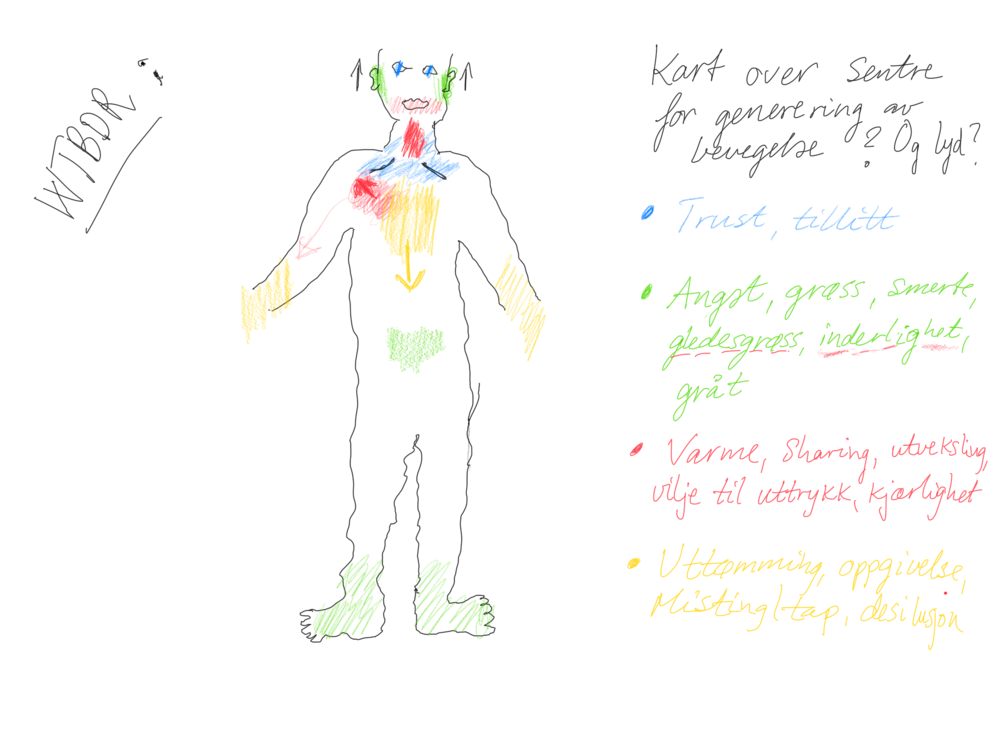 WTBDR
Kart over sentre
for generering av
bevegelse ? Og lyd?
Trust, tillitt
Angst, græss, smerte,
gledesgræss, inderlighet,
gråt
Varme, Sharing, utveksling,
vilje til uttrykk, kjærlighet
Uttømming, oppgivelse,
Misting/tap, desilusjon